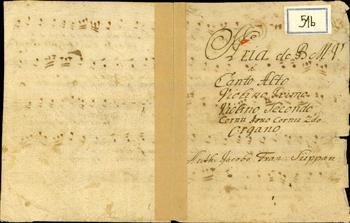 51b
Aria de B M V
à
Canto Alto
Violino Primo
Violino Secondo
Cornu Imo Cornu 2do
Organo
Auth. Jacobo Fran: Suppan